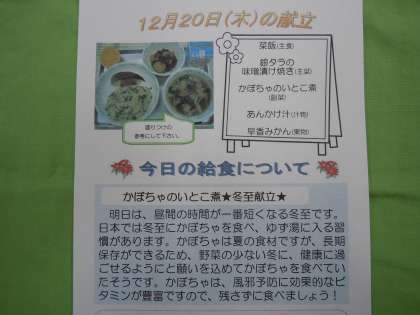 12月20日(木)の献立
菜飯(主食)
銀タラの
味噌漬け焼き(主菜)
かぼちゃのいとこ煮
(副菜)
あんかけ汁(汁物)
早香みかん(果物)
盛りつけの
参考にして下さい。
今日の給食について
かぼちゃのいとこ煮★冬至献立★
明日は、昼間の時間が一番短くなる冬至です。
日本では冬至にかぼちゃを食べ、ゆず湯に入る習
慣があります。かぼちゃは夏の食材ですが、長期
保存ができるため、野菜の少ない冬に、健康に過
ごせるようにと願いを込めてかぼちゃを食べてい
たそうです。かぼちゃは、風邪予防に効果的なビ
タミンが豊富ですので、残さずに食べましょう！